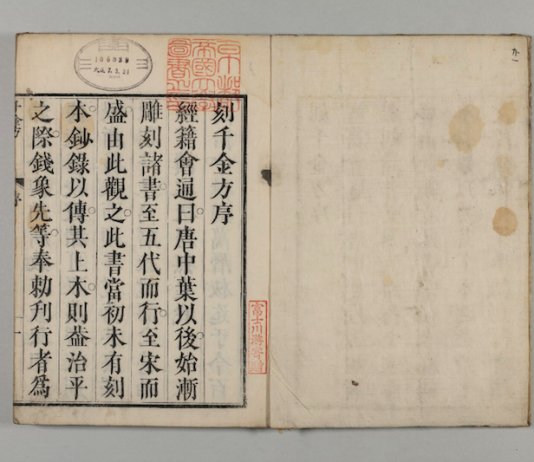 刻千金方序
經籍會通曰唐中葉以後始漸
雕刻諸書至五代而行至宋而
盛由此觀之此書當初未有刻
本鈔錄以傳其上木則葢治平
之際錢象先等奉勅刋行者爲
富士川游寄贈